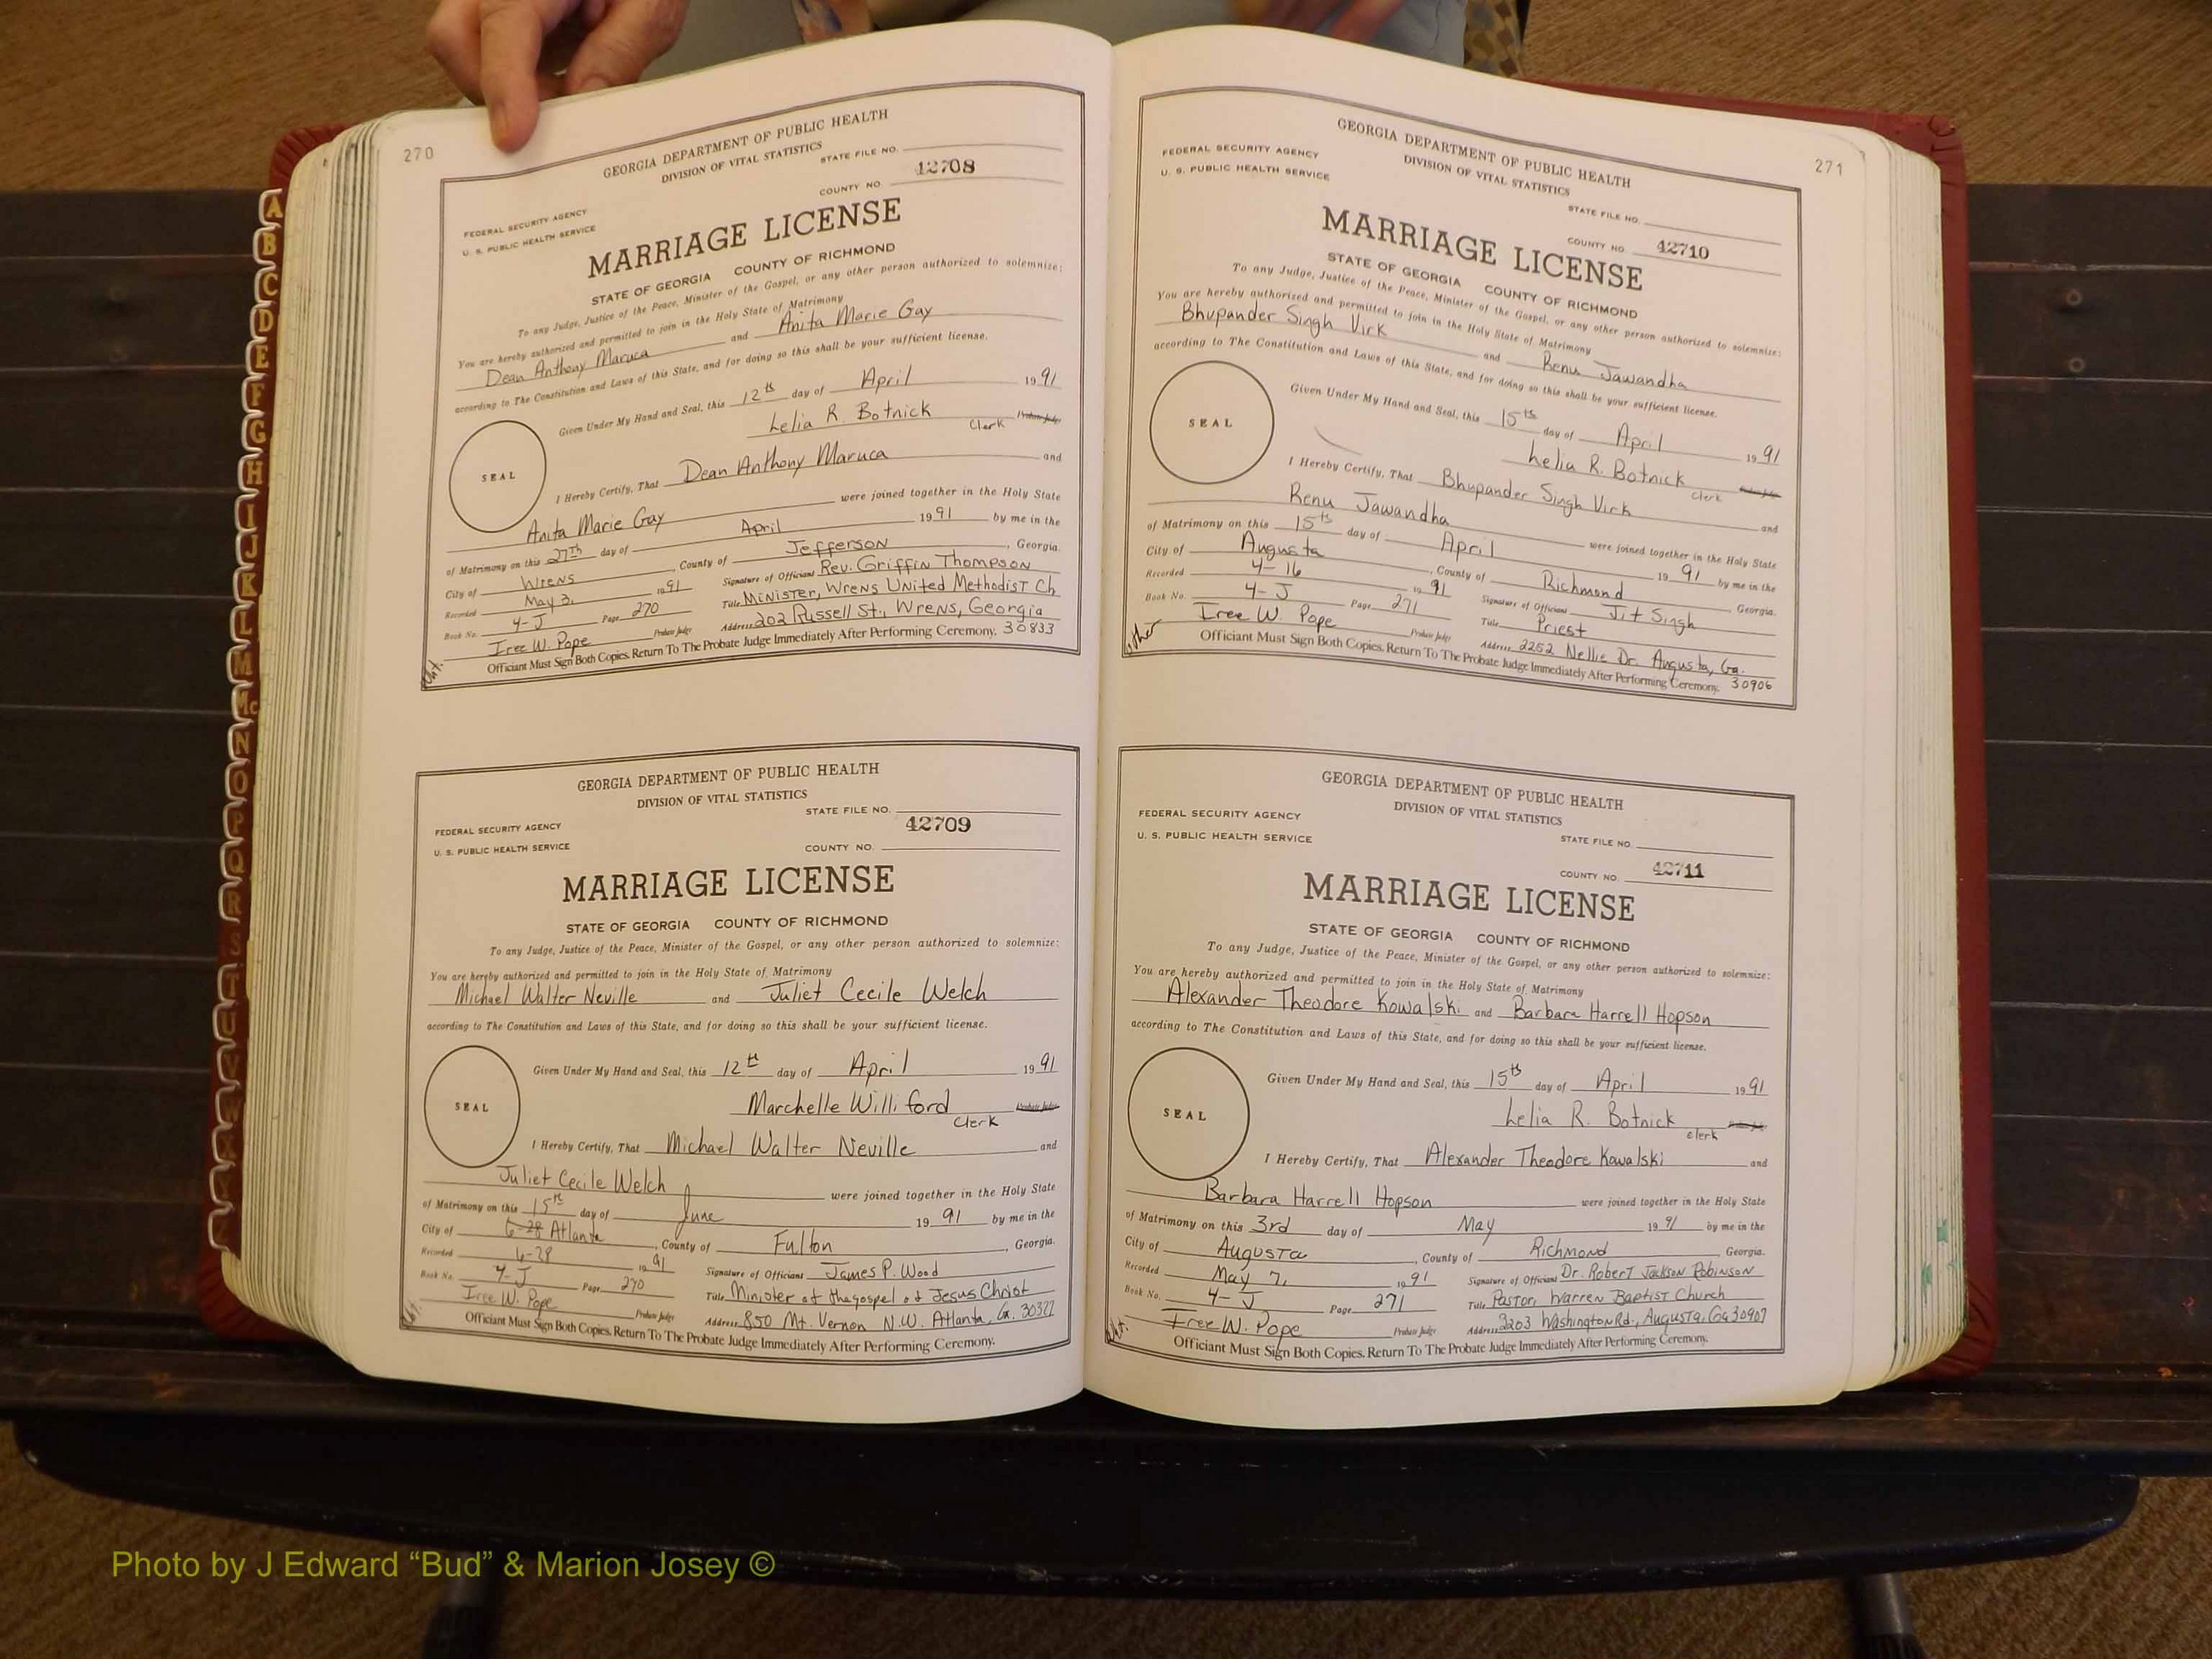 270
GEORGIA DEPARTMENT OF PUBLIC HEALTH
DIVISION OF VITAL STATISTICS
STATE FILE NO.
42708
COUNTY NO.
FEDERAL SECURITY AGENCY
U. S. PUBLIC HEALTH SERVICE
MARRIAGE LICENSE
STATE OF GEORGIA COUNTY OF RICHMOND
To any Judge, Justice of the Peace, Minister of the Gospel, or any other person authorized to solemnize:
You are hereby authorized and permitted to join in the Holy State of Matrimony
Dean Anthony Maruca and Anita Marie Gay
according to The Constitution and Laws of this State, and for doing so this shall be your sufficient license.
Given Under My Hand and Seal, this 12th day of April 1991
Lelia R. Botnick
Clerk Probate Judge
SEAL
I Hereby Certify, That Dean Anthony Maruca and
Anita Marie Gay were joined together in the Holy State
of Matrimony on this 27th day of April 1991 by me in the
City of Wrens, County of Jefferson, Georgia.
Recorded May 3, 1991 Signature of Officiant Rev. Griffin Thompson
Book No. 4-J Page 270 Title Minister, Wrens United Methodist Ch
Iree W. Pope Probate Judge Address 202 Russell St., Wrens, Georgia
30833
Officiant Must Sign Both Copies. Return To The Probate Judge Immediately After Performing Ceremony.
GEORGIA DEPARTMENT OF PUBLIC HEALTH
DIVISION OF VITAL STATISTICS
STATE FILE NO.
42709
FEDERAL SECURITY AGENCY
U. S. PUBLIC HEALTH SERVICE
COUNTY NO.
MARRIAGE LICENSE
STATE OF GEORGIA COUNTY OF RICHMOND
To any Judge, Justice of the Peace, Minister of the Gospel, or any other person authorized to solemnize:
You are hereby authorized and permitted to join in the Holy State of Matrimony
Michael Walter Neville and Juliet Cecile Welch
according to The Constitution and Laws of this State, and for doing so this shall be your sufficient license.
Given Under My Hand and Seal, this 12th day of April 1991
Marchelle Williford Probate Judge
Clerk
SEAL
I Hereby Certify, That Michael Walter Neville and
Juliet Cecile Welch were joined together in the Holy State
of Matrimony on this 15th day of June 1991 by me in the
City of 6-28 Atlanta, County of Fulton, Georgia.
Recorded 6-28 1991 Signature of Officiant James P. Wood
Book No. 4-J Page 270 Title Minister of the gospel of Jesus Christ
Iree W. Pope Probate Judge Address 850 Mt. Vernon N.W. Atlanta, Ga. 30327
Officiant Must Sign Both Copies. Return To The Probate Judge Immediately After Performing Ceremony.
271
GEORGIA DEPARTMENT OF PUBLIC HEALTH
DIVISION OF VITAL STATISTICS
FEDERAL SECURITY AGENCY
U. S. PUBLIC HEALTH SERVICE
STATE FILE NO.
COUNTY NO. 42710
MARRIAGE LICENSE
STATE OF GEORGIA COUNTY OF RICHMOND
To any Judge, Justice of the Peace, Minister of the Gospel, or any other person authorized to solemnize:
You are hereby authorized and permitted to join in the Holy State of Matrimony
Bhupander Singh Virk and Renu Jawandha
according to The Constitution and Laws of this State, and for doing so this shall be your sufficient license.
Given Under My Hand and Seal, this 15th day of April 1991
Lelia R. Botnick
Clerk
SEAL
I Hereby Certify, That Bhupander Singh Virk and
Renu Jawandha were joined together in the Holy State
of Matrimony on this 15th day of April 1991 by me in the
City of Augusta, County of Richmond Georgia.
Recorded 4-16 1991 Signature of Officiant Jit Singh
Book No. 4-J Page 271 Title Priest
Iree W. Pope Probate Judge Address 2252 Nellie Dr. Augusta, Ga.
30906
other
Officiant Must Sign Both Copies. Return To The Probate Judge Immediately After Performing Ceremony.
GEORGIA DEPARTMENT OF PUBLIC HEALTH
DIVISION OF VITAL STATISTICS
FEDERAL SECURITY AGENCY
U. S. PUBLIC HEALTH SERVICE
STATE FILE NO.
COUNTY NO. 42711
MARRIAGE LICENSE
STATE OF GEORGIA COUNTY OF RICHMOND
To any Judge, Justice of the Peace, Minister of the Gospel, or any other person authorized to solemnize:
You are hereby authorized and permitted to join in the Holy State of Matrimony
Alexander Theodore Kowalski and Barbara Harrell Hopson
according to The Constitution and Laws of this State, and for doing so this shall be your sufficient license.
Given Under My Hand and Seal, this 15th day of April 1991
Lelia R. Botnick
clerk
SEAL
I Hereby Certify, That Alexander Theodore Kowalski and
Barbara Harrell Hopson were joined together in the Holy State
of Matrimony on this 3rd day of May 1991 by me in the
City of Augusta, County of Richmond, Georgia.
Recorded May 7, 1991 Signature of Officiant Dr. Robert Jackson Robinson
Book No. 4-J Page 271 Title Pastor, Warren Baptist Church
Iree W. Pope Probate Judge Address 3203 Washington Rd., Augusta, Ga 30907
Officiant Must Sign Both Copies. Return To The Probate Judge Immediately After Performing Ceremony.
A
B
C
D
E
F
G
H
I
J
K
L
M
Mc
N
O
P
Q
R
S
T
U
V
W
X
Photo by J Edward “Bud” & Marion Josey ©